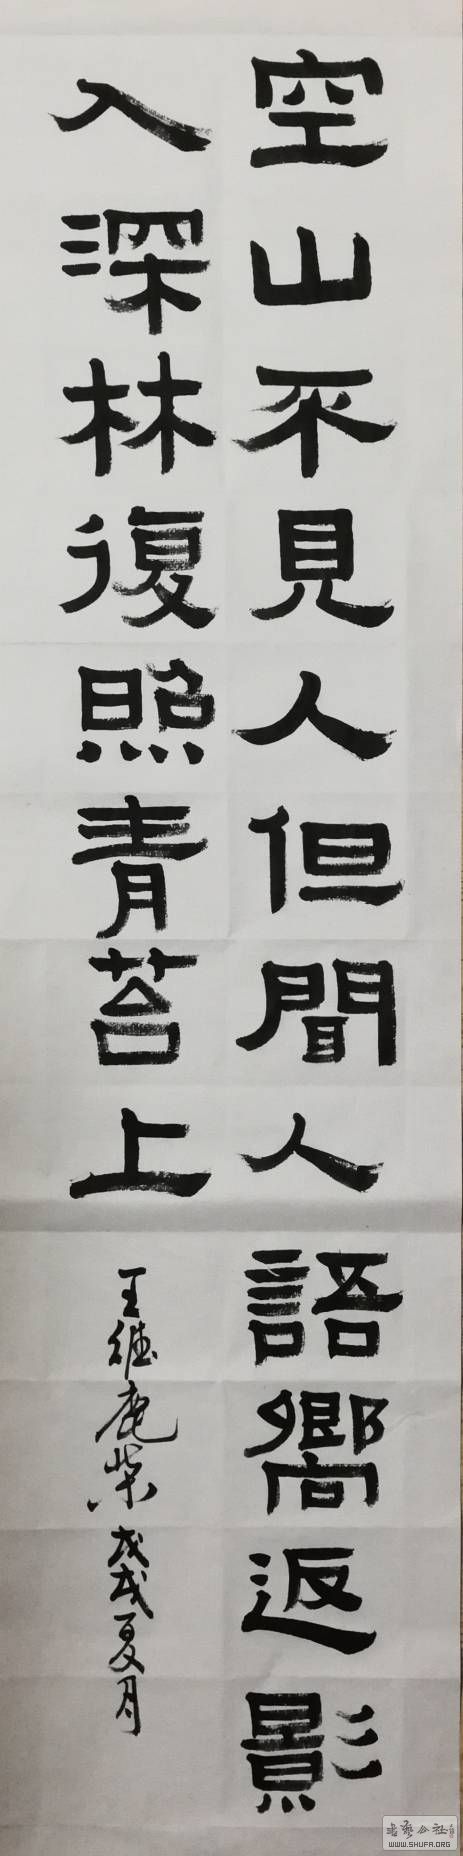 空山不見人但聞人語嚮返影
入深林復照青苔上
王維鹿柴 戊戌夏月
WWW.SHUFA.ORG